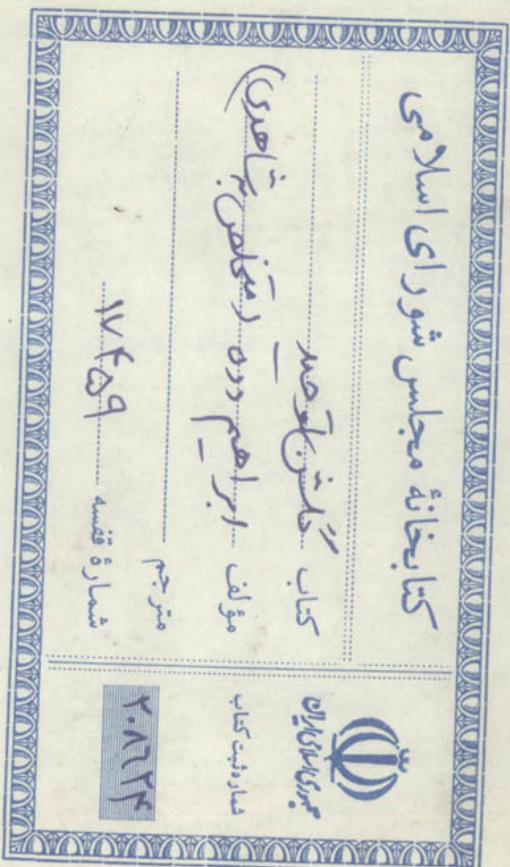 کتابخانهٔ مجلس شورای اسلامی
کتاب گلشن توحید
مؤلف ابراهیم دده (متخلص به شاهدی)
مترجم
شمارهٔ قفسه ۱۷۴۵۹
جمهوری اسلامی ایران
شماره ثبت کتاب
۲۰۸۶۲۴